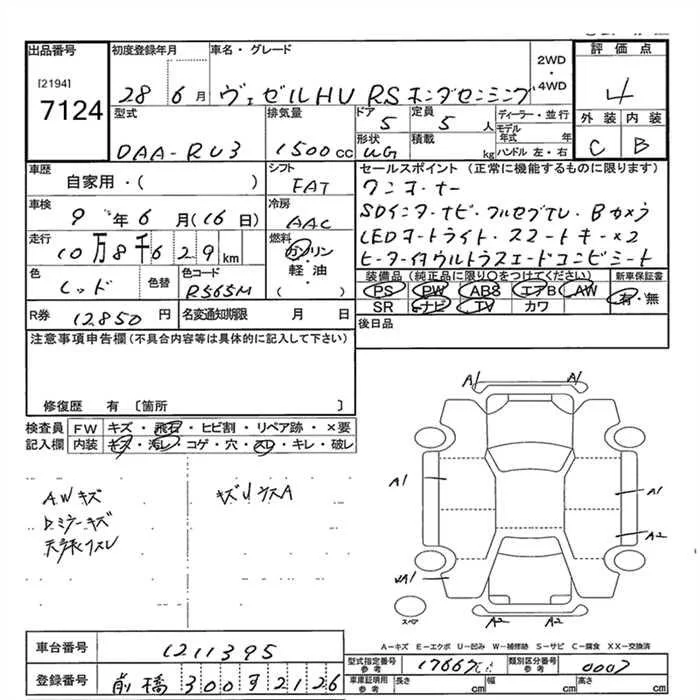 出品番号 初度登録年月 車名・グレード 2WD・4WD 評価点
[2194]
7124 28 6月 ヴェゼルHV RSホンダセンシング 4
型式 排気量 ドア 定員 ディーラー・並行 外装 内装
DAA-RU3 1500cc 5 5人 モデル年式 年 C B
形状 積載 ハンドル 左・右
WG kg
車歴 シフト セールスポイント (正常に機能するものに限ります)
自家用・( ) FAT ワンオーナー
車検 冷房 SDインターナビ・フルセグTV・Bカメラ
9年6月(16日) AAC LEDオートライト・スマートキー×2
走行 燃料 ヒーター付ウルトラスエードコンビシート
10万8千629km ガソリン・軽油・( )
色 色替 色コード 装備品 (純正品に限り○をつけてください) 新車保証書
レッド R565M PS PW ABS エアB AW 有・無
SR ナビ TV カワ
R券 12850円 名変通知期限 月 日 後日品
注意事項申告欄(不具合内容等は具体的に記入して下さい)
修復歴 有 〔箇所 〕
検査員記入欄 FW キズ・飛石・ヒビ割・リペア跡・×要
内装 キズ・汚レ・コゲ・穴・スレ・キレ・破レ
AWキズ キズUウスA
Dミラーキズ
A1 A1
A1 A1
A2
A1
A2 A2
スペア
A-キズ E-エクボ U-凹み W-補修跡 S-サビ C-腐食 XX-交換済
車台番号 1211395
型式指定番号 参考 類別区分番号 参考 0007
登録番号 前橋 300 す 2126
車庫証明用 参考 長さ cm 幅 cm 高さ cm